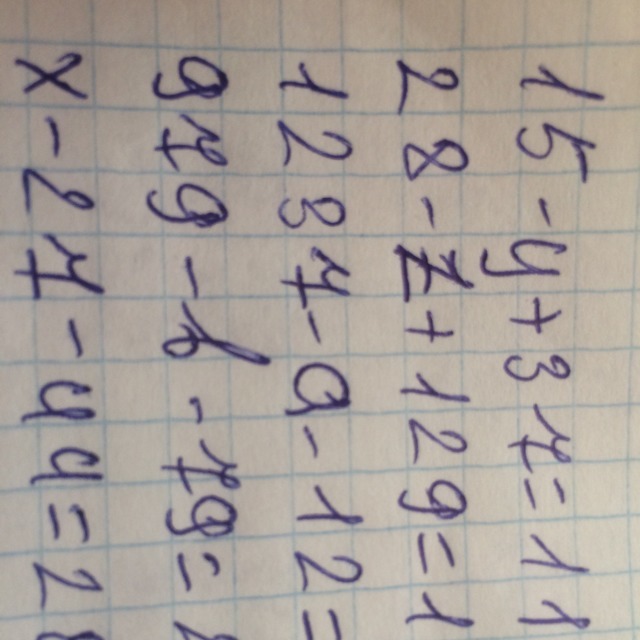 15-y+37=11
28-z+129=1
1287-a-12=
979-b-79=
x-27-44=2